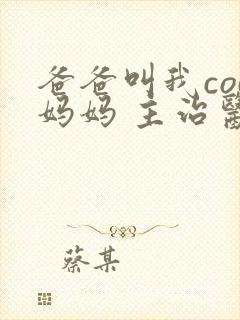 爸爸叫我co
妈妈 主治醫
蔡某